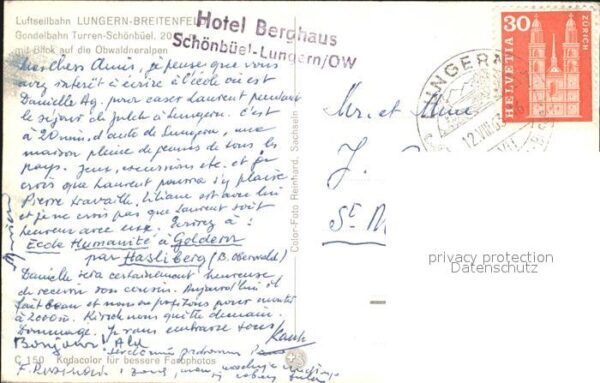 Luftseilbahn LUNGERN-BREITENFEL
Gondelbahn Turren-Schönbüel, 20
mit Blick auf die Obwaldneralpen
Hotel Berghaus
Schönbüel-Lungern/OW
Mes chers Amis, je pense que vous
avez intérêt à écrire à l'école où est
Danielle Ag. pour caser Laurent pendant
le séjour de Juliet à Lungern. C'est
à 20 min. d'auto de Lungern, une
maison pleine de jeunes de tous les
pays. Jeux, excursions etc. et je
crois que Laurent pourra s'y plaire.
Pierre travaille, Liliane est avec lui
et je ne crois pas que Laurent soit
heureux avec eux. Ecrivez à :
Ecole Humanité à Goldern
par Hasliberg (B. Oberwald)
Danielle sera certainement heureuse
de recevoir son cousin. Aujourd'hui il
fait beau et nous en profitons pour monter
à 2000 m. Kirch nous quitte demain.
Dommage. Je vous embrasse tous
Bonjour! Ald
C 150 Kodacolor für bessere Farbphotos
Color-Foto Reinhard, Sachseln
Mr. et Mme
J.
St. M
HELVETIA
30
ZÜRICH
LUNGERN
12.VIII.63
privacy protection
Datenschutz